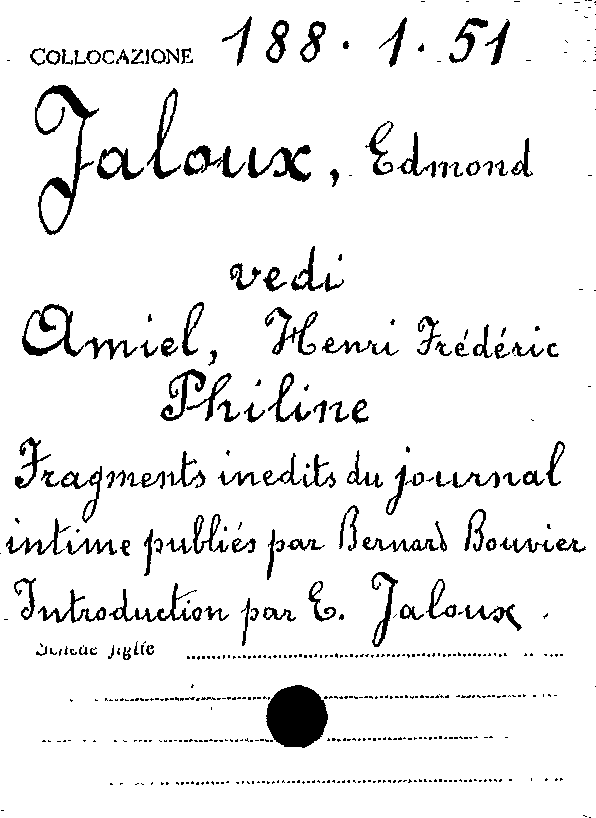 COLLOCAZIONE 188.1.51
Jaloux, Edmond
vedi
Amiel, Henri Frédéric
Philine
Fragments inedits du journal
intime publiés par Bernard Bouvier
Introduction par E. Jaloux.
Schede figlie